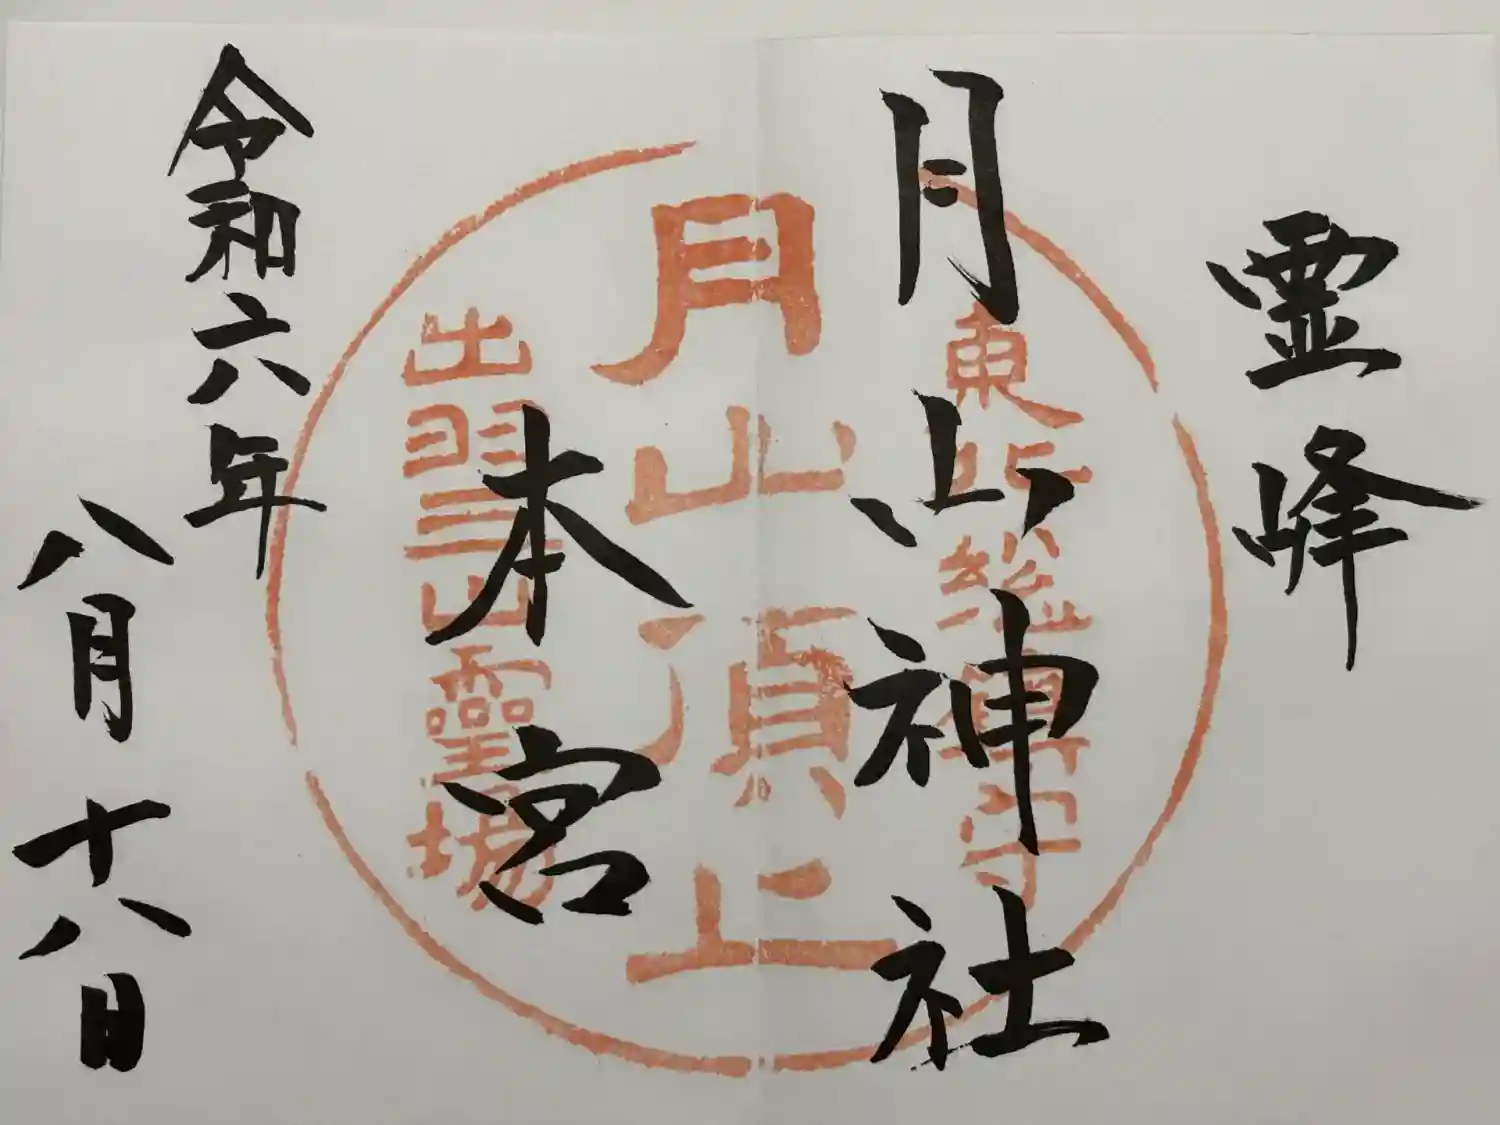 霊峰
月山神社
本宮
令和六年
八月十八日
東北総鎮守
月山頂上
出羽三山靈場